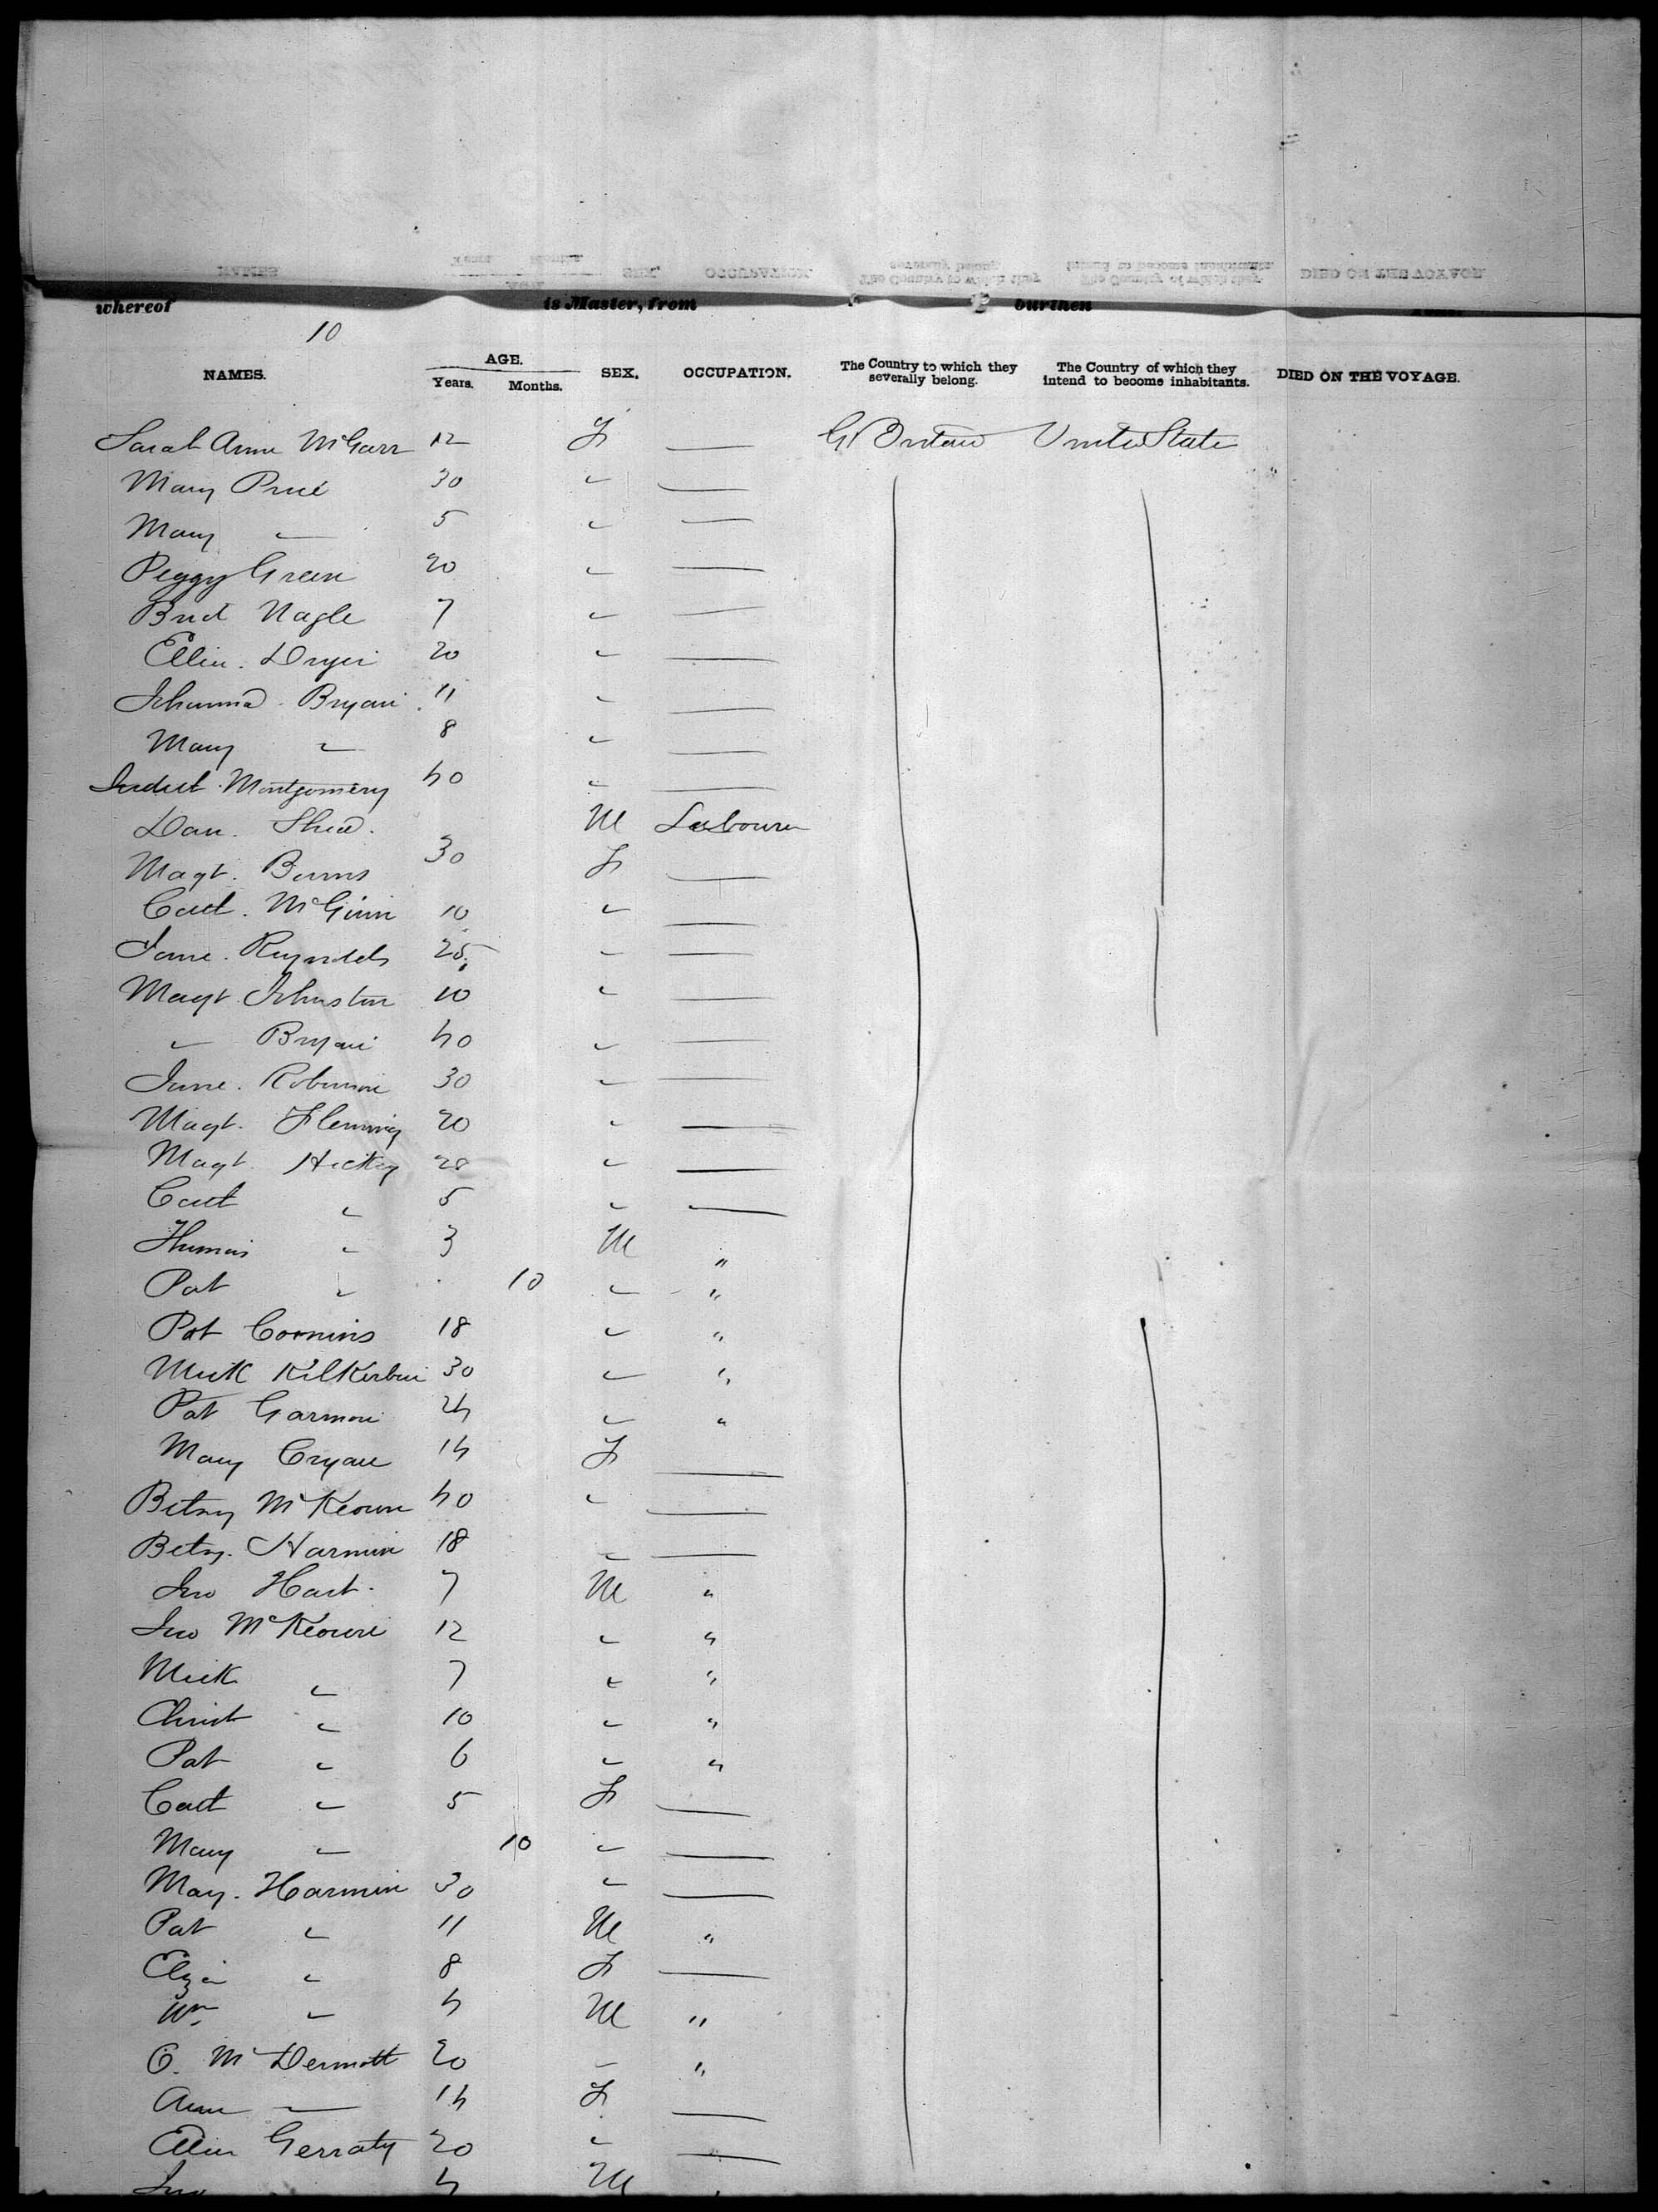 whereof is Master, from burthen
10
NAMES. AGE. Years. Months. SEX. OCCUPATION. The Country to which they severally belong. The Country of which they intend to become inhabitants. DIED ON THE VOYAGE.
Sarah Anne McGarr 12 F — Gt Britain United State
Mary Price 30 " —
Mary " 5 " —
Peggy Green 20 " —
Brid Nagle 7 " —
Ellin. Dryer 20 " —
Johanna. Bryan 11 " —
Mary " 8 " —
Montgomery 40 " —
Dan. Shea. M Labourer
Magt. Burns 30 F —
Cath. McGinn 10 " —
Jane. Reynolds 25 " —
Magt. Johnston 10 " —
" Bryan 40 " —
Jane. Robinson 30 " —
Magt. Fleming 20 " —
Magt. Hickey 28 " —
Cath " 5 " —
Thomas " 3 M "
Pat " 10 " "
Pat Comins 18 " "
Mick 30 " "
Pat Garmon 24 " "
Mary Cryan 14 F —
Betsy McKeown 40 " —
Betsy. Harmin 18 " —
Jno Hart. 7 M "
Jno McKeown 12 " "
Mick " 7 " "
Christ " 10 " "
Pat " 6 " "
Cath " 5 F —
Mary " 10 " —
May. Harmin 30 " —
Pat " 11 M "
Eliza " 8 F —
Wm " 4 M "
O. McDermott 20 " "
Ann — 14 F —
Ellen Gerraty 20 " —
Jno 4 M